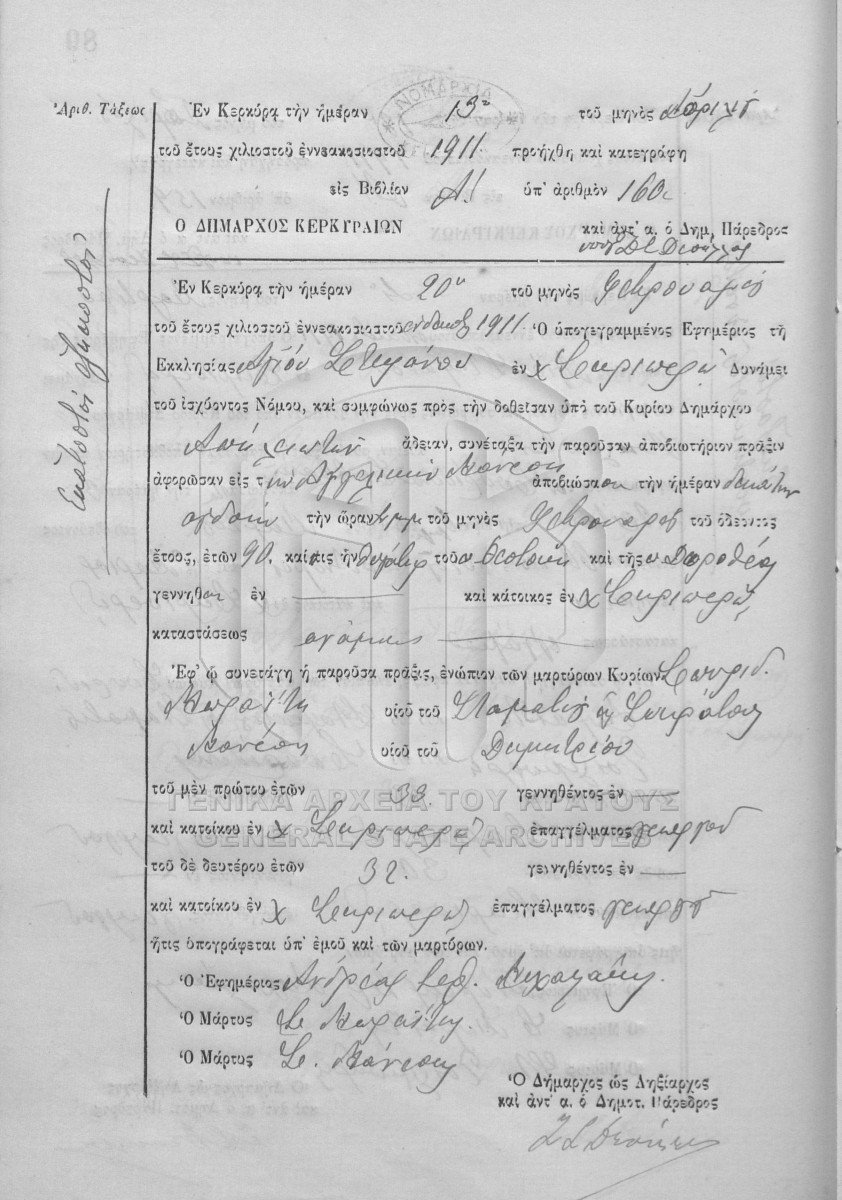 Ἀριθ. Τάξεως
Ἐν Κερκύρᾳ τὴν ἡμέραν 13η τοῦ μηνὸς Ἀπριλίου
τοῦ ἔτους χιλιοστοῦ ἐννεακοσιοστοῦ 1911 προήχθη καὶ κατεγράφη
εἰς Βιβλίον Α! ὑπ' ἀριθμὸν 160
Ο ΔΗΜΑΡΧΟΣ ΚΕΡΚΥΡΑΙΩΝ καὶ ἀντ' α. ὁ Δημ. Πάρεδρος
ΝΟΜΑΡΧΙΑ
Ἐν Κερκύρᾳ τὴν ἡμέραν 20η τοῦ μηνὸς Φεβρουαρίου
τοῦ ἔτους χιλιοστοῦ ἐννεακοσιοστοῦ ἑνδεκάτου 1911 Ὁ ὑπογεγραμμένος Ἐφημέριος τῆς
Ἐκκλησίας Ἁγίου Στεφάνου ἐν χ Σκριπερῷ Δυνάμει
τοῦ ἰσχύοντος Νόμου, καὶ συμφώνως πρὸς τὴν δοθεῖσαν ὑπὸ τοῦ Κυρίου Δημάρχου
ἄδειαν, συνέταξα τὴν παροῦσαν ἀποβιωτήριον πρᾶξιν
ἀφορῶσαν εἰς τὴν Ἀγγελικὴν ἀποβιώσασαν τὴν ἡμέραν δεκάτην
ὀγδόην τὴν ὥραν τοῦ μηνὸς Φεβρουαρίου τοῦ ὁδεύοντος
ἔτους, ἐτῶν 90. καὶ ἥτις ἦν θυγάτηρ τοῦ Θεοτόκη καὶ τῆς Δωροθέας
γεννηθεῖσα ἐν καὶ κάτοικος ἐν χ Σκριπερῷ,
καταστάσεως ἀγάμου
Ἐφ' ᾧ συνετάγη ἡ παροῦσα πρᾶξις, ἐνώπιον τῶν μαρτύρων Κυρίων Σπυρίδ.
υἱοῦ τοῦ Σταματίου
υἱοῦ τοῦ Δημητρίου
τοῦ μὲν πρώτου ἐτῶν 33. γεννηθέντος ἐν
ΓΕΝΙΚΑ ΑΡΧΕΙΑ ΤΟΥ ΚΡΑΤΟΥΣ
καὶ κατοίκου ἐν χ Σκριπερῷ ἐπαγγέλματος γεωργοῦ
GENERAL STATE ARCHIVES
τοῦ δὲ δευτέρου ἐτῶν 32. γεννηθέντος ἐν
καὶ κατοίκου ἐν χ Σκριπερῷ ἐπαγγέλματος γεωργοῦ
ἥτις ὑπογράφεται ὑπ' ἐμοῦ καὶ τῶν μαρτύρων.
Ὁ Ἐφημέριος Ἀνδρέας
Ὁ Μάρτυς Σ.
Ὁ Μάρτυς Σ.
Ὁ Δήμαρχος ὡς Ληξίαρχος
καὶ ἀντ' α. ὁ Δημοτ. Πάρεδρος